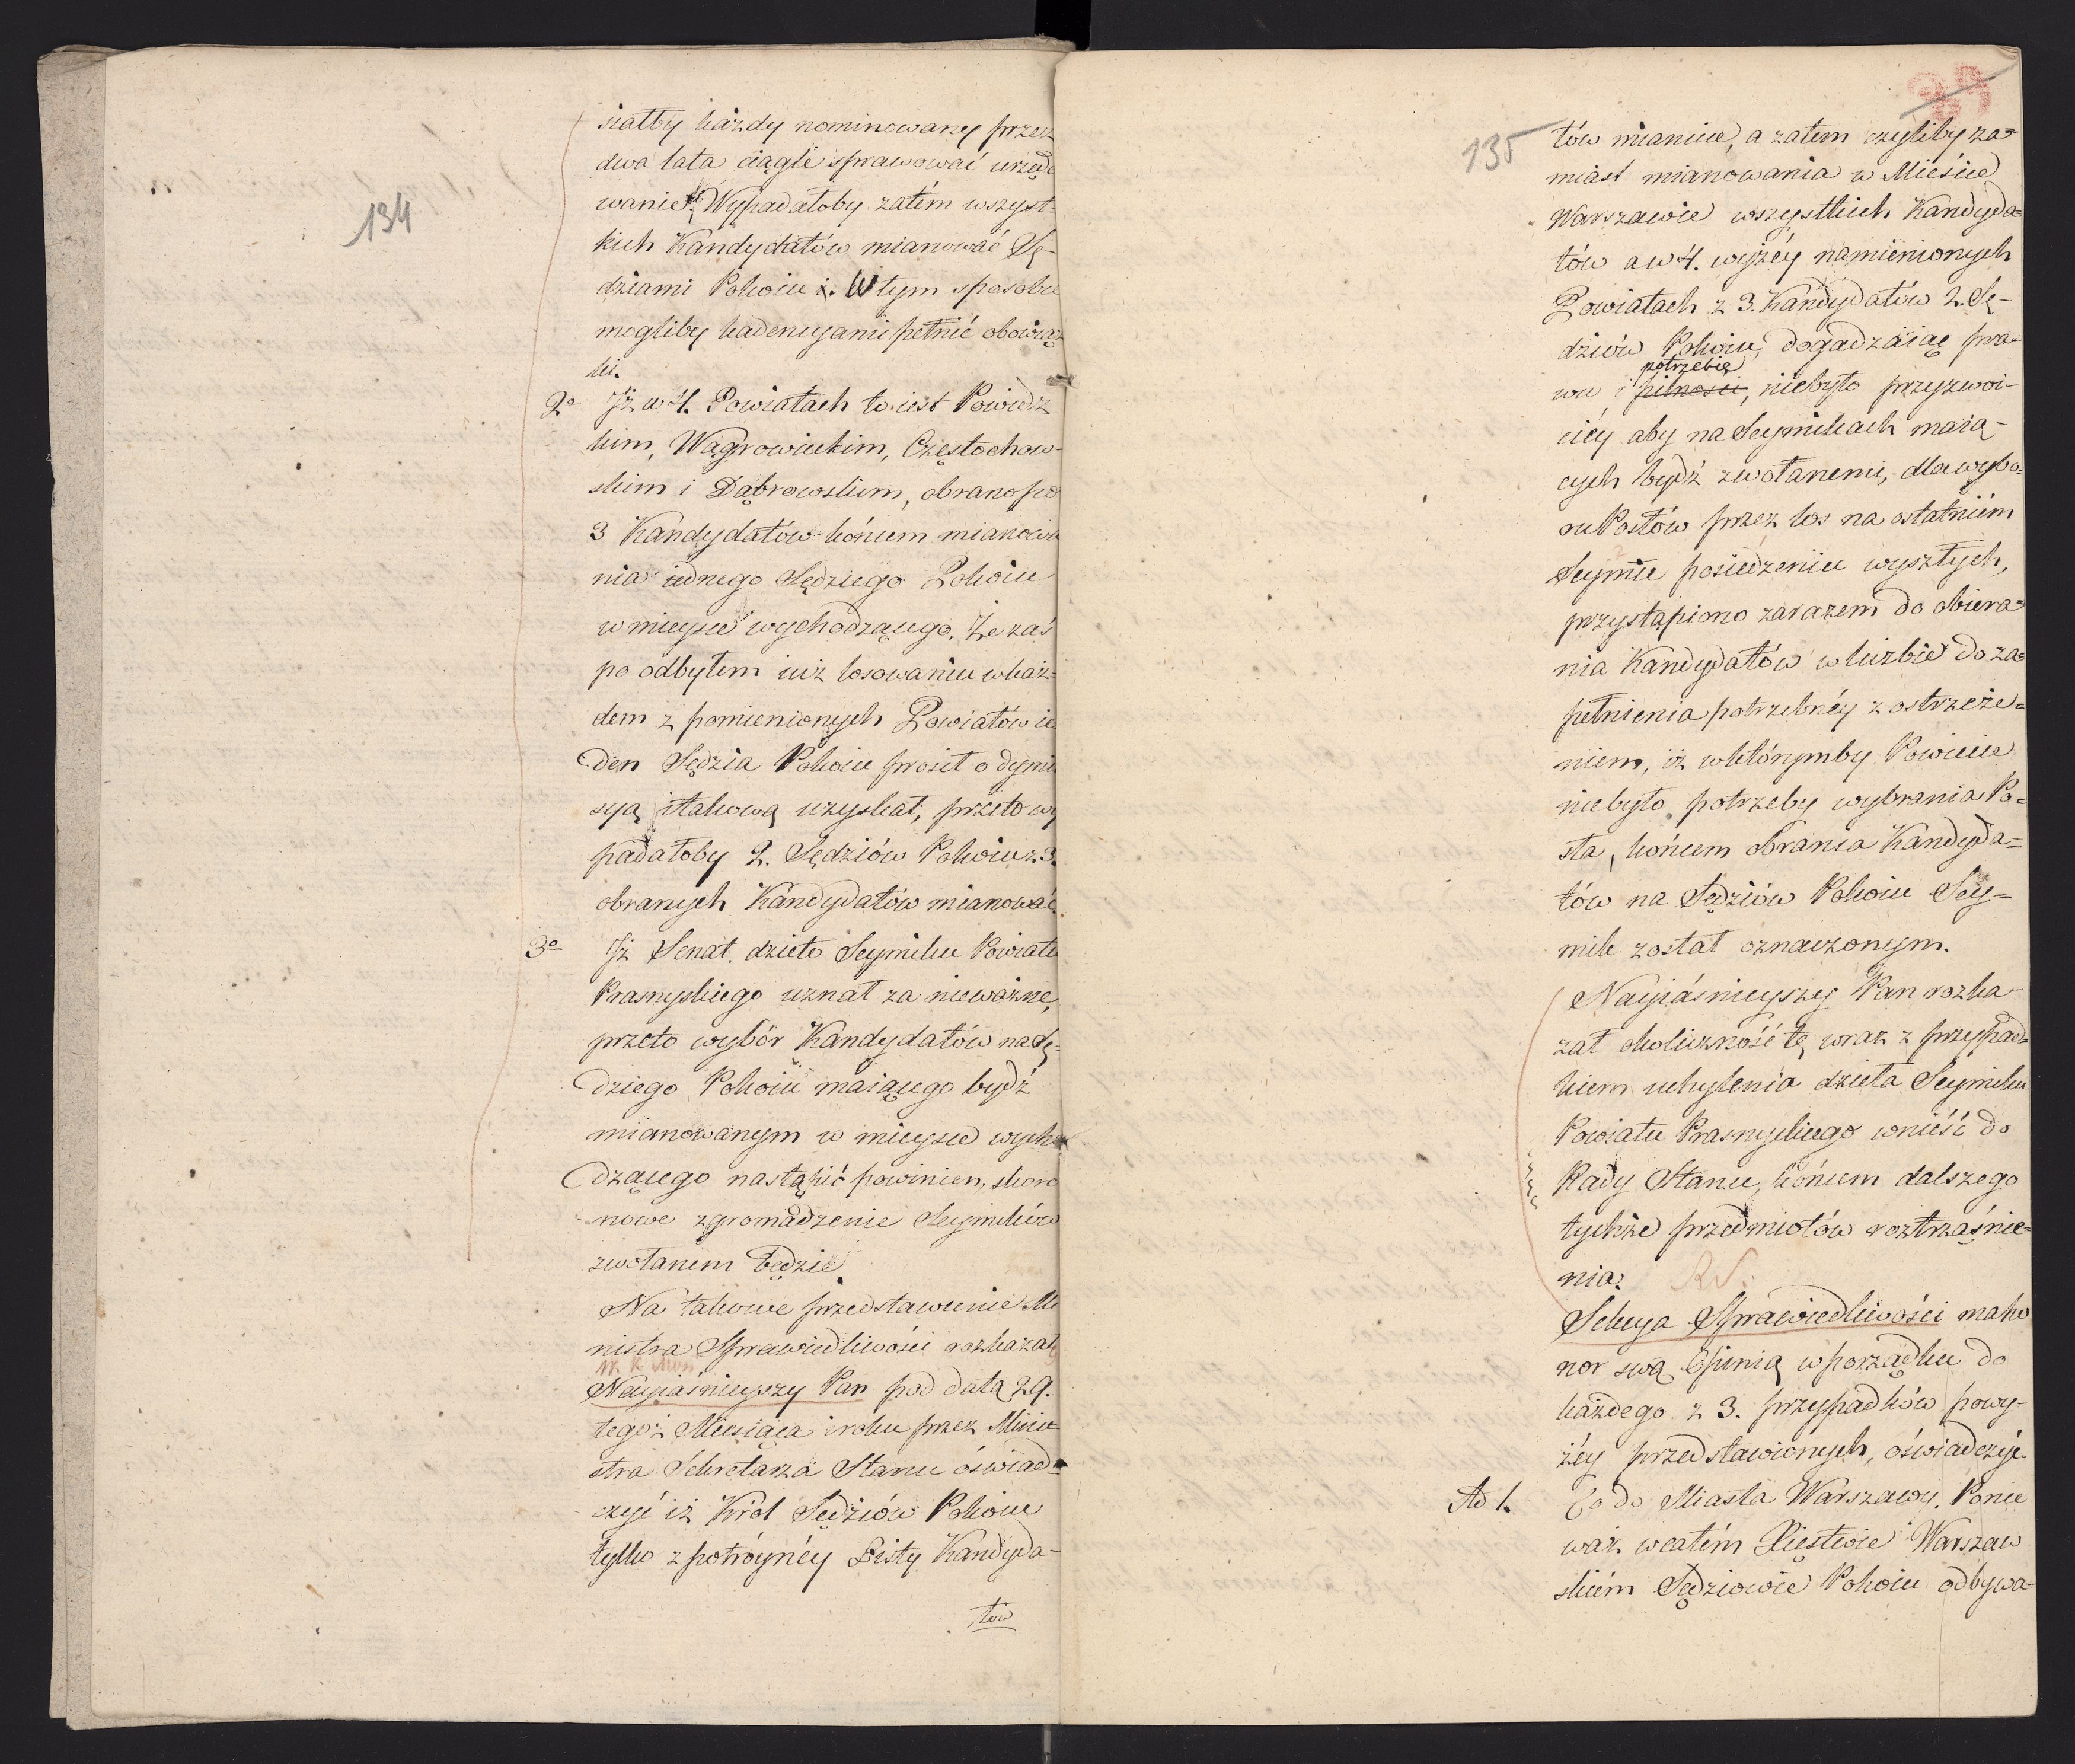 134
siałby każdy nominowany przez
dwa lata ciągle sprawować urzęd
wanie. Wypadałoby zatém wszyst-
kich Kandydatów mianować Sę-
dziami Pokoiu i. W tym sposobie
mogliby kadencyami pełnić obowiąz
ki.
2o Jż w 4. Powiatach to iest Powidz
kim, Wągrowieckim, Częstochow-
skim i Dąbrowskim, obrano po
3 Kandydatów końcem mianowa
nia iednego Sędziego Pokoiu
w mieysce wychodzącego. Że zaś
po odbytem iuż losowaniu w każ-
dem z pomienionych Powiatów ie
den Sędzia Pokoiu prosił o dymi
syą i takową uzyskał, przeto wy
padałoby 2. Sędziów Pokoiu z 3.
obranych Kandydatów mianować.
3o Jż Senat dzieło Seymiku Powiatu
Prasnyskiego uznał za nieważne,
przeto wybór Kandydatów na Sę-
dziego Pokoiu maiącego bydź
mianowanym w mieysce wycho
dzącego nastąpić powinien, skoro
nowe zgromadzenie Seymików
zwołanem będzie.
Na takowe przedstawienie Mi
nistra Sprawiedliwości rozkazał
N. K. Mon
Nayiaśnieyszy Pan pod datą 29.
tegoż Miesiąca i roku przez Mini-
stra Sekretarza Stanu oświad-
czyć iż Król Sędziów Pokoiu
tylko z potróynéy Listy Kandyda-
tow
135
tów mianuie, a zatem czyliby za-
miast mianowania w Mieście
Warszawie wszystkich Kandyda-
tów a w 4. wyżéy namienionych
Powiatach z 3. Kandydatów 2. Sę-
dziów Pokoiu, dogadzaiąc pra-
potrzebie
wu i pilności, niebyło przyzwoi-
ciéy aby na Seymikach maią-
cych bydź zwołanemi, dla wybo-
ru Posłów przez los na ostatniém
Seymie posiedzeniu wyszłych,
przystąpiono zarazem do obiera-
nia Kandydatów w liczbie do za-
pełnienia potrzebnéy z ostrzeże-
niem, iż w którymby Powiecie
niebyło potrzeby wybrania Po-
sła, końcem obrania Kandyda-
tów na Sędziów Pokoiu Sey-
mik został oznaczonym.
Nayiaśnieyszy Pan rozka-
zał okoliczność tę wraz z przypad-
kiem uchylenia dzieła Seymiku
Powiatu Prasnyskiego wnieść do
Rady Stanu, końcem dalszego
tychże przedmiotów roztrząśnie-
nia.
Sekcya Sprawiedliwości ma ho
nor swą Opinią w porządku do
każdego z 3. przypadków powy-
żéy przedstawionych, oświadczyć.
Ad 1. Co do Miasta Warszawy. Ponie
waż w całém Xięstwie Warszaw
skiém Sędziowie Pokoiu odbywa-